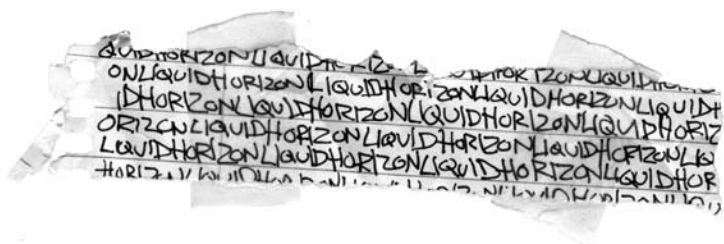 QUIDHORIZONLIQUIDHORIZONLIQUIDHORIZONLIQUIDHORIZON
ONLIQUIDHORIZONLIQUIDHORIZONLIQUIDHORIZONLIQUIDH
IDHORIZONLIQUIDHORIZONLIQUIDHORIZONLIQUIDHORIZ
ORIZONLIQUIDHORIZONLIQUIDHORIZONLIQUIDHORIZONLIQ
LIQUIDHORIZONLIQUIDHORIZONLIQUIDHORIZONLIQUIDHOR
HORIZONLIQUIDHORIZONLIQUIDHORIZONLIQUIDHORIZONLIQU